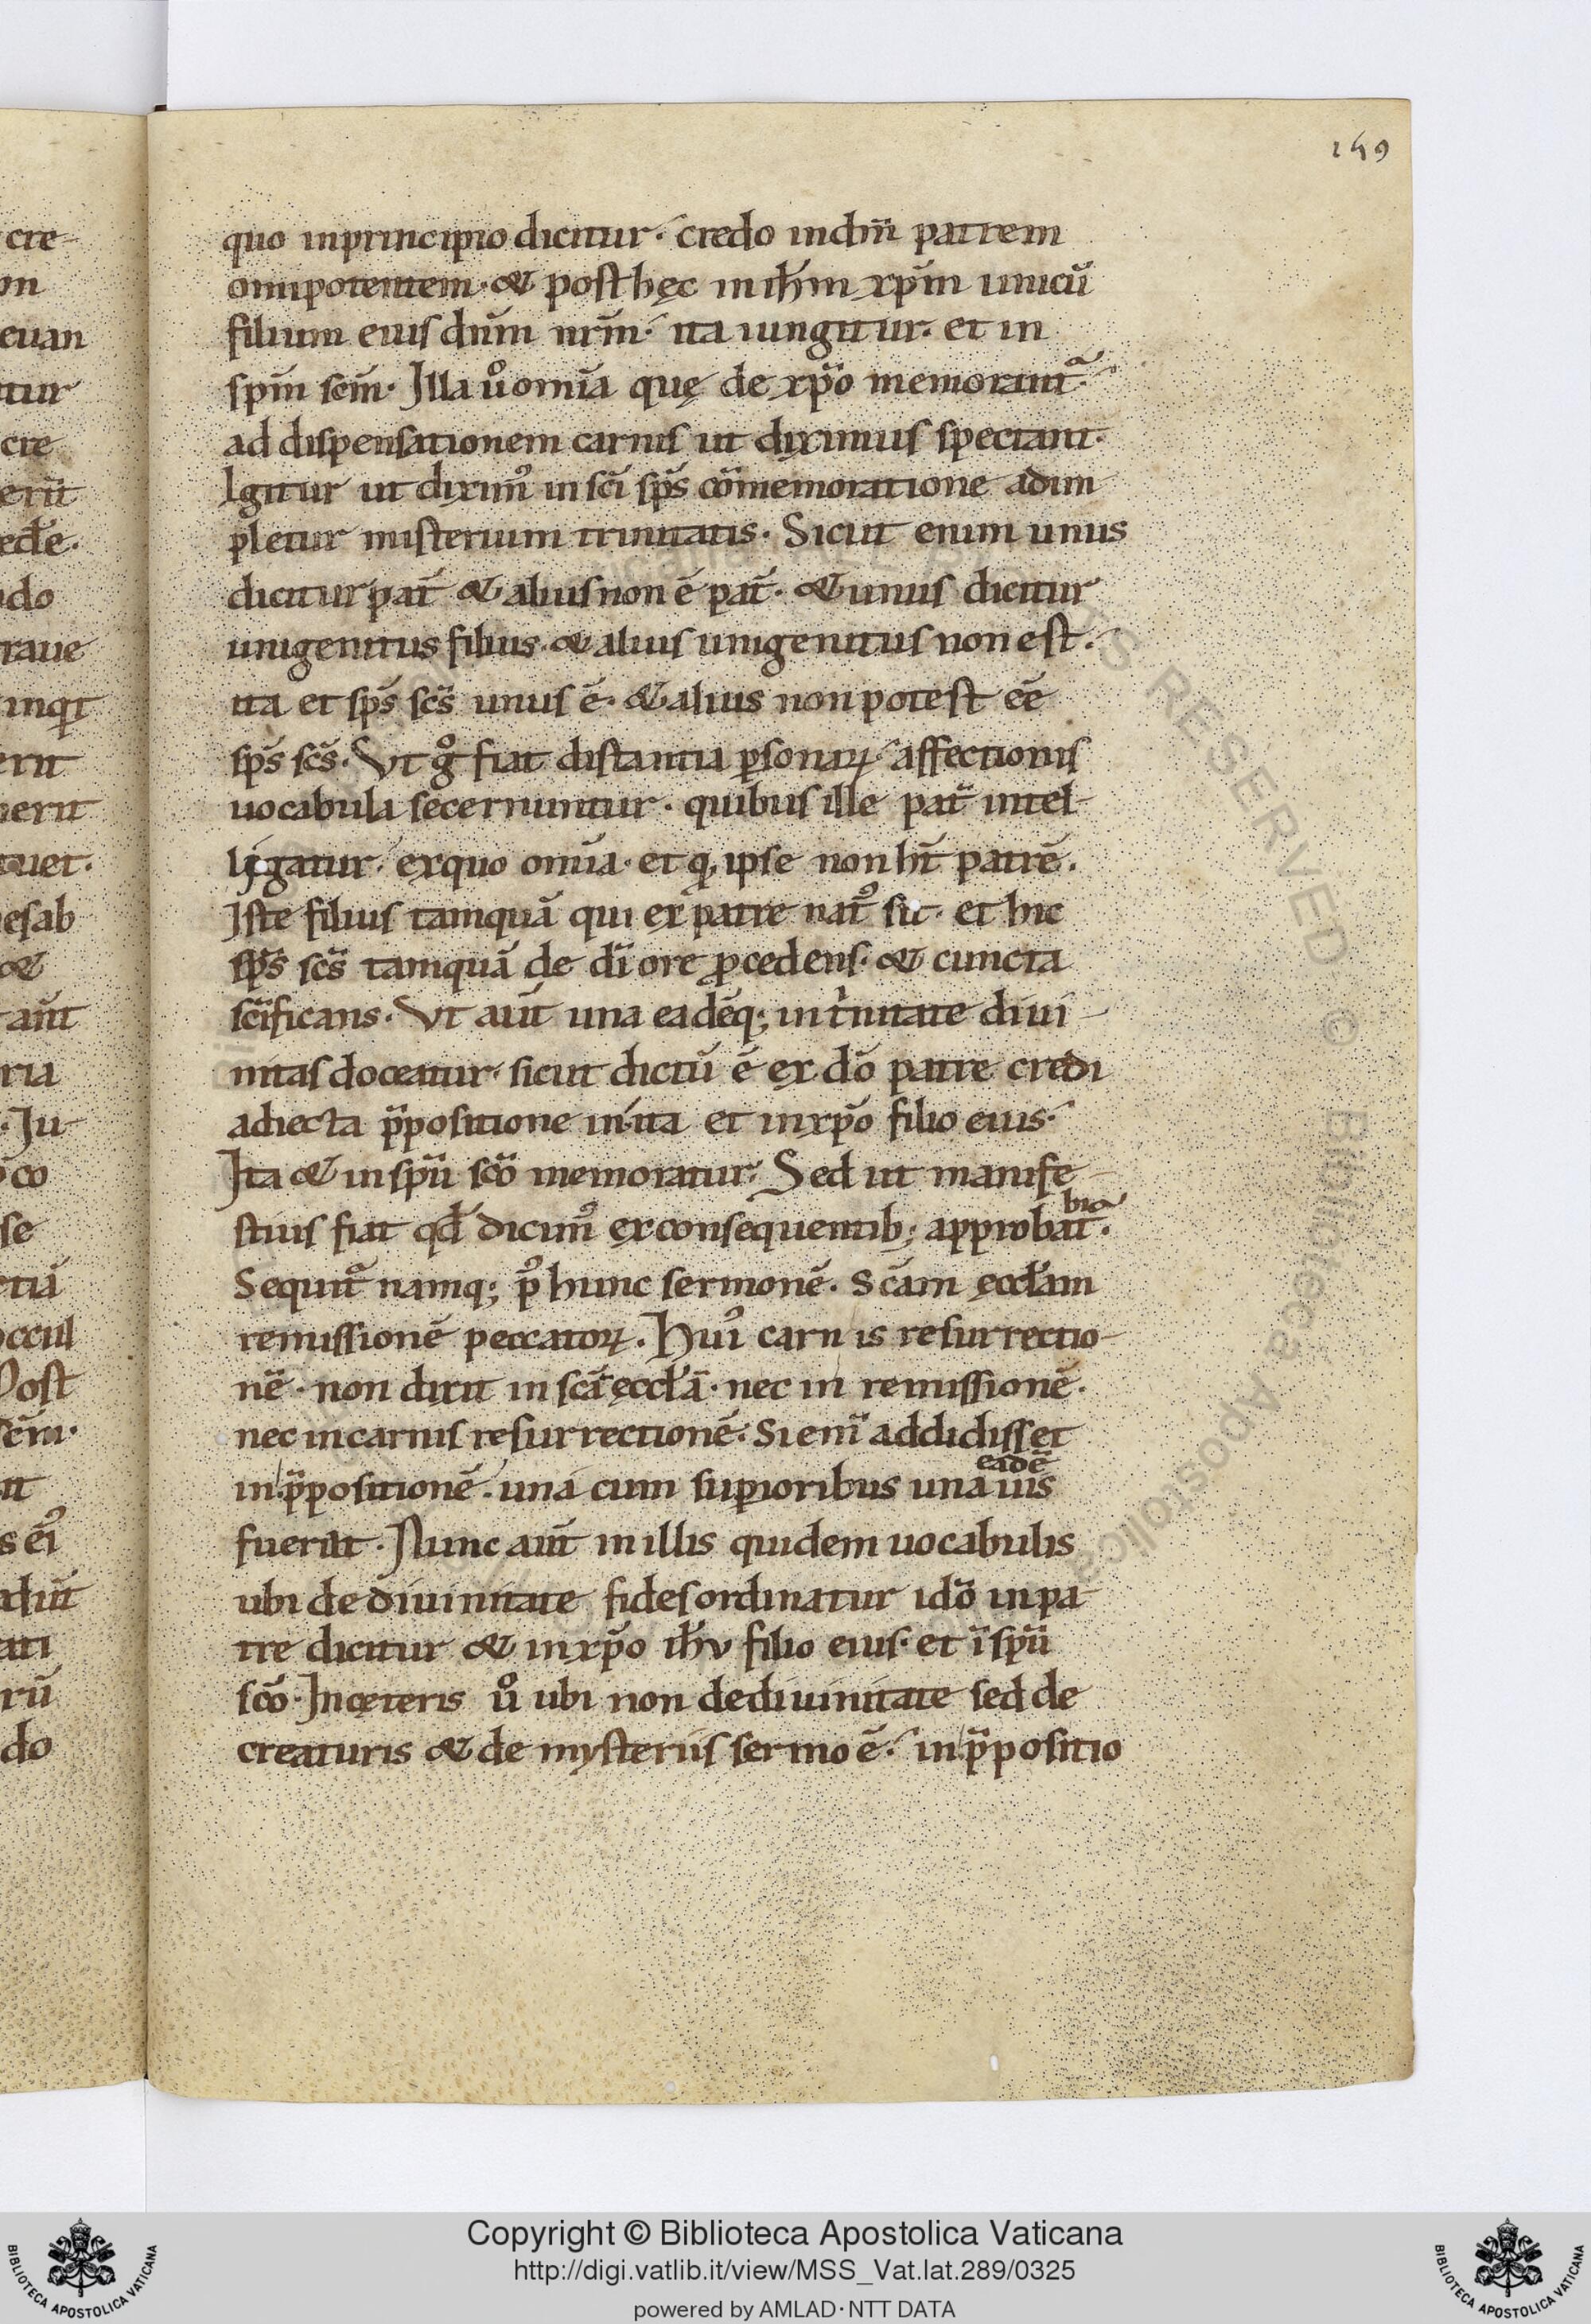 149
quo inprincipio dicitur. credo indm̄ patrem
omipotentem. & post hęc inih̄m xp̄m unicū
filium eius dn̄m nr̄m. ita iungitur. et in
sp̄m sc̄m. Illa ůomīa quę de xp̄o memorantͣ.
ad dispensationem carnis ut diximus spectant.
Igitur ut dixim᾿ in sc̄i sp̄s cōmemoratione adim
pletur misterium trinitatis. Sicut enim unus
dicitur pat̄ & alius non ē pat̄. & unus dicitur
unigenitus filius. & alius unigenitus non est.
ita et sp̄s sc̄s unus ē. & alius non potest eē
sp̄s sc̄s. Vt g̊ fiat distantia ꝑsonaꝝ affectionis
uocabula secernuntur. quibus ille pat̄ intel-
ligatur. exquo omīa. et q ipse non ht̄ patrē.
Iste filius tamquā qui ex patre nat᾿ sit. et hic
sp̄s sc̄s tamquā de dī ore ꝓcedens. & cuncta
sc̄ificans. Vt aut̄ una eadēq; in trinitate diui-
nitas doceatur. sicut dictū ē ex dō patre credi
adiecta p̄positione in. ita et inxp̄o filio eius.
Ita & in sp̄u sc̄o memoratur. Sed ut manife-
stius fiat qd̄ dicim᾿ ex consequentib; approbabit᾿.
Sequnt᾿ namq; p᾿ hunc sermonē. Scām ęccl̄am
remissionē peccatoꝝ. Hui᾿ carnis resurrectio-
nē. non dixit in scā ęccl̄ā. nec in remissionē.
nec incarnis resurrectionē. Si enī addidisset
in p̄positionē. una cum suꝑioribus una eadēuis
fuerat. Nunc aut̄ in illis quidem uocabulis
ubi de diuinitate fides ordinatur idō inpa-
tre dicitur & inxp̄o ih̄v filio eius. et ī sp̄u
sc̄o. In cęteris ů ubi non dediuinitate sed de
creaturis & de mysteriis sermo ē. in p̄positio
cre-
on
euan
tur
cre
do
raue
inqt
erit
esab
&
aut̄
ria
Iu-
co
se
tiā
occul
Post
ati
rū
do
Copyright © Biblioteca Apostolica Vaticana
http://digi.vatlib.it/view/MSS_Vat.lat.289/0325
powered by AMLAD · NTT DATA
BIBLIOTECA APOSTOLICA VATICANA
BIBLIOTECA APOSTOLICA VATICANA